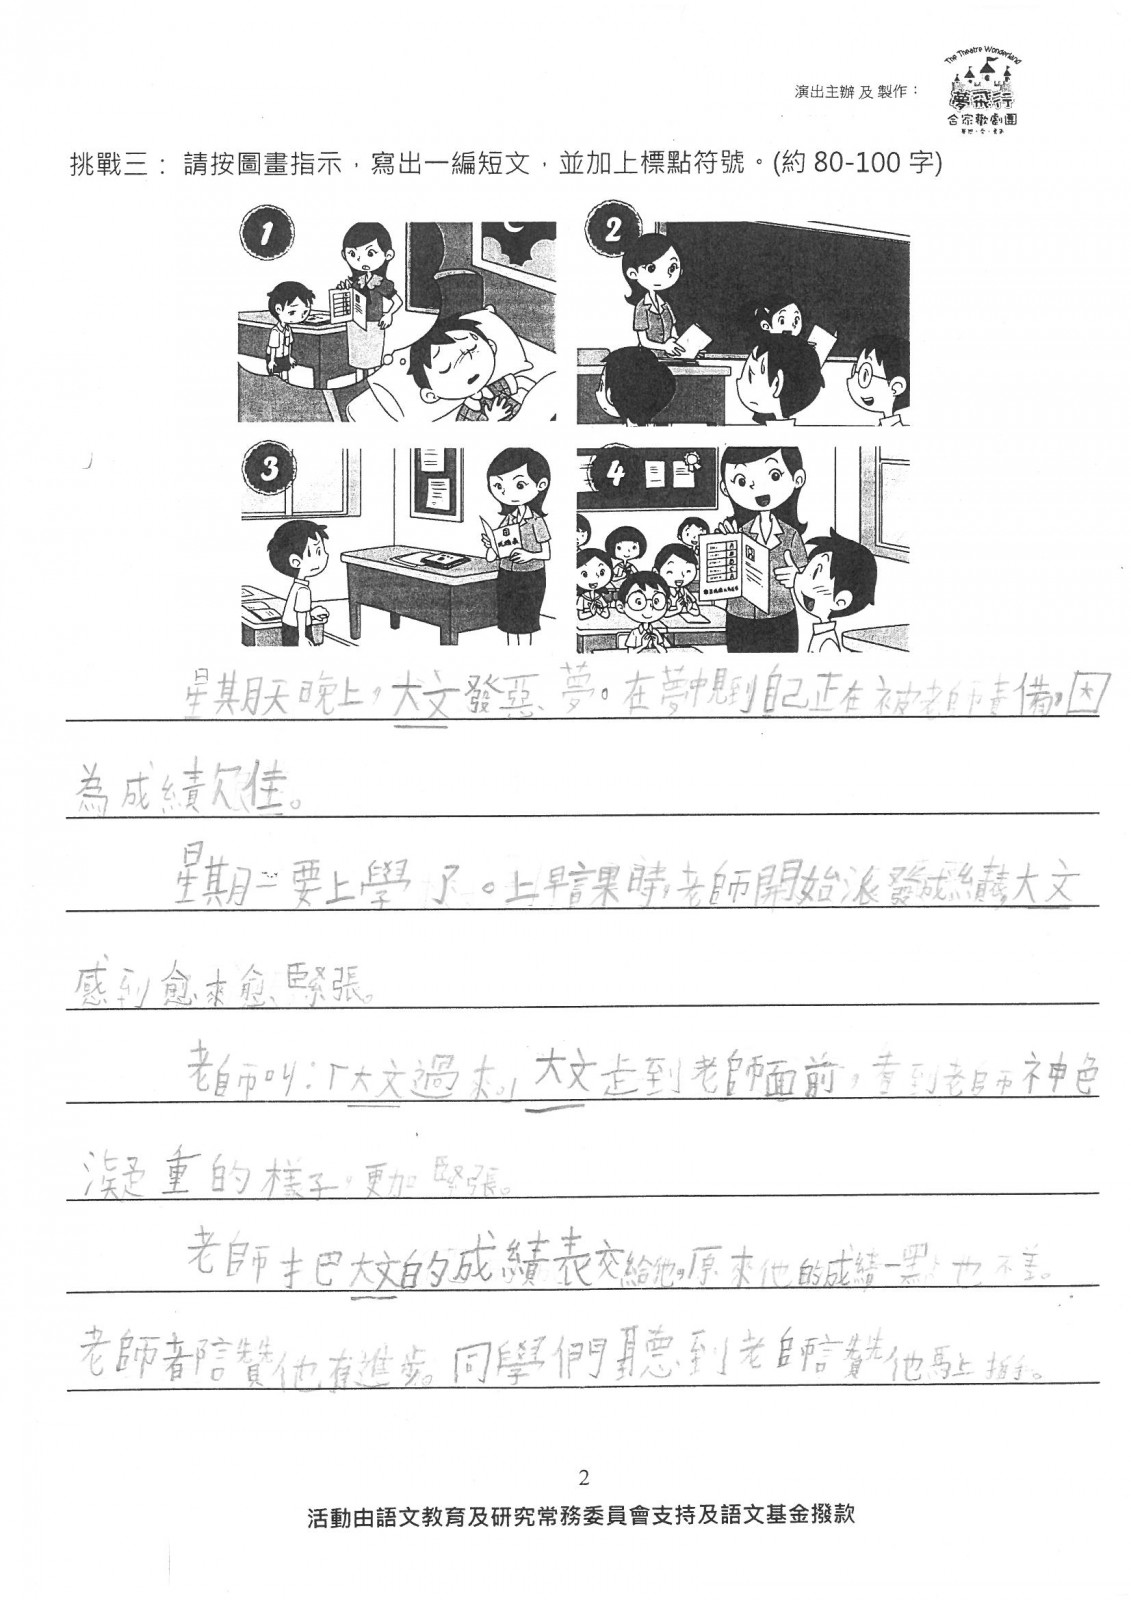 The Theatre Wonderland
演出主辦 及 製作：
夢飛行
合家歡劇團
挑戰三： 請按圖畫指示，寫出一編短文，並加上標點符號。(約 80-100 字)
1
2
3
4
星期天晚上，大文發惡夢。在夢中見到自己正在被老師責備，因
為成績欠佳。
星期一要上學了。上早會課時，老師開始派發成績，大文
感到愈來愈緊張。
老師叫：「大文過來。」大文走到老師面前，看到老師神色
凝重的樣子，更加緊張。
老師才把大文的成績表交給他，原來他的成績一點也不差。
老師都讚他有進步。同學們聽到老師讚他馬上拍手。
2
活動由語文教育及研究常務委員會支持及語文基金撥款